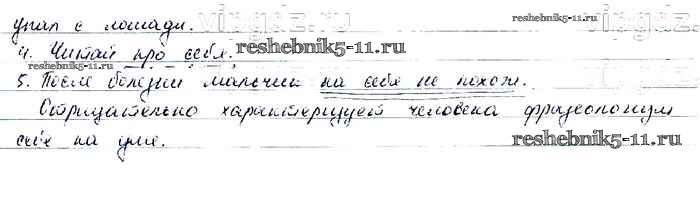 упал с лошади.
4. Читай про себя.
5. После болезни мальчик на себя не похож.
Отрицательно характеризует человека фразеологизм
себе на уме.
vingdz.ru
reshebnik5-11.ru
reshebnik5-11.ru
reshebnik5-11.ru
reshebnik5-11.ru